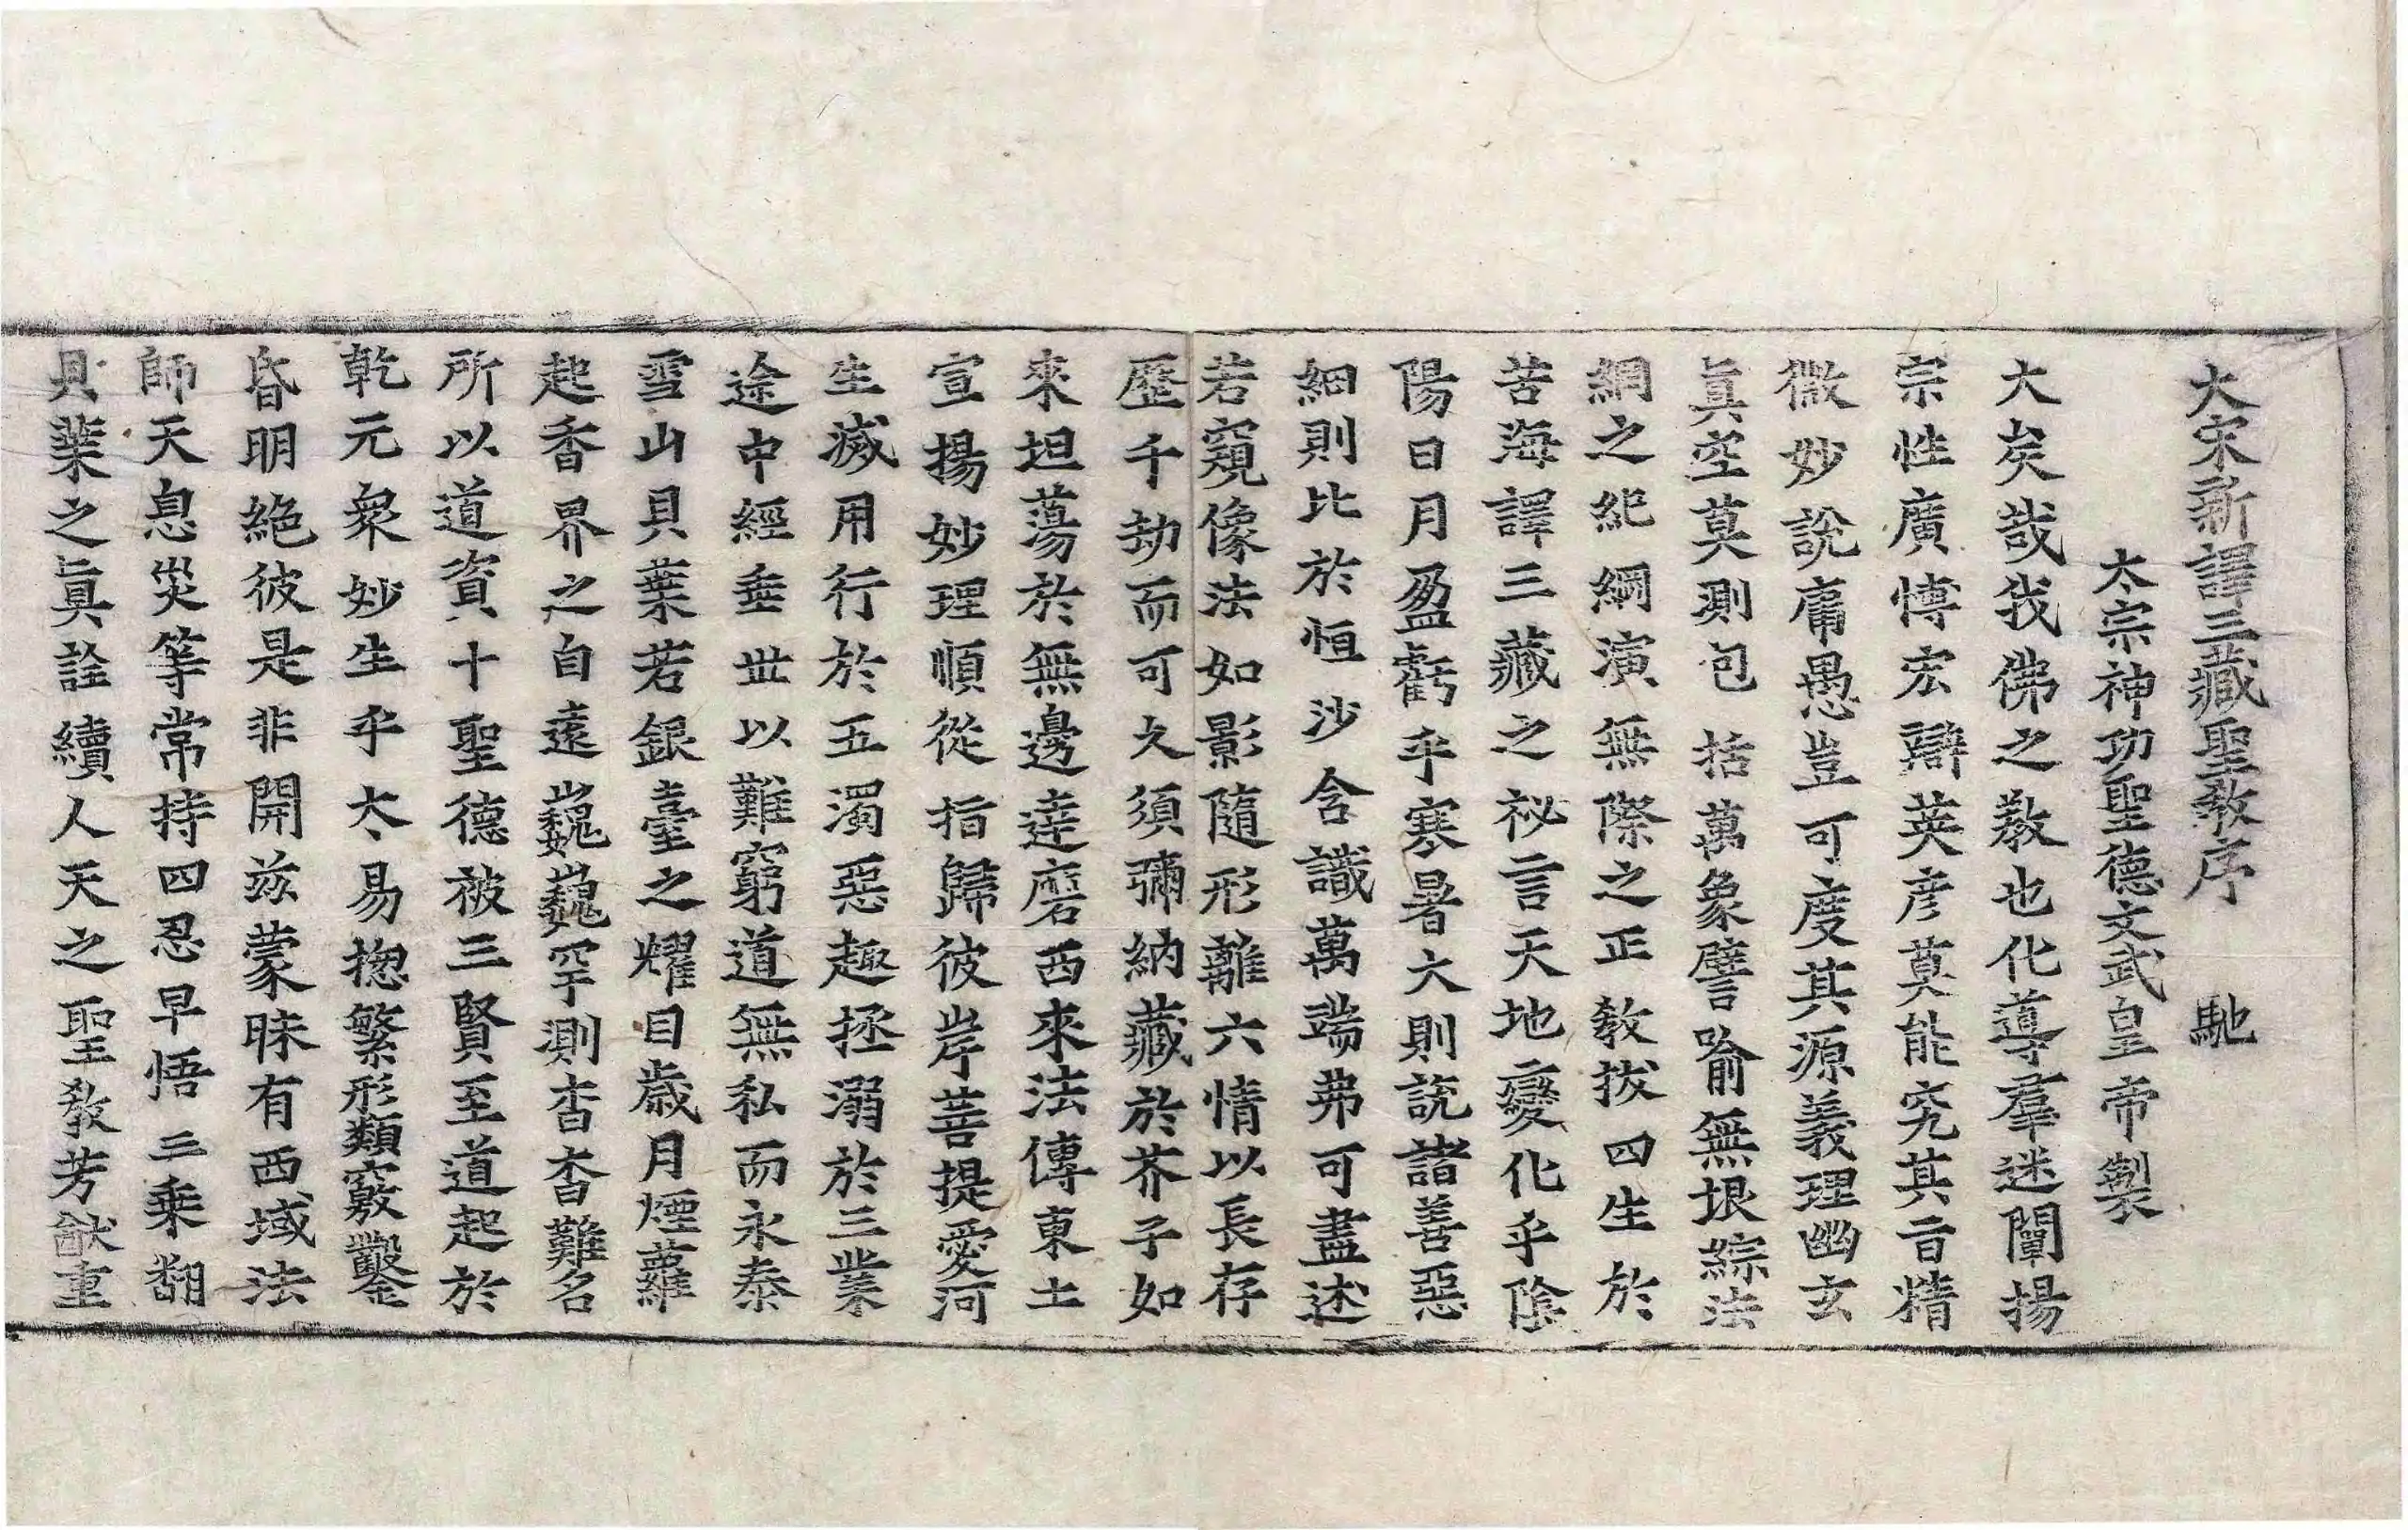 大宋新譯三藏聖教序 馳
太宗神功聖德文武皇帝製
大矣哉我佛之教也化導羣迷闡揚
宗性廣愽宏辯英彦莫能究其旨精
微妙說庸愚豈可度其源義理幽玄
眞空莫測包括萬象譬喻無垠綜法
網之紀綱演無際之正教拔四生於
苦海譯三藏之祕言天地變化乎陰
陽日月盈虧乎寒暑大則說諸善惡
細則比於恒沙含識萬端弗可盡述
若窺像法如影隨形離六情以長存
歷千劫而可久須彌納藏於芥子如
來坦蕩於無邊達磨西來法傳東土
宣揚妙理順從指歸彼岸菩提愛河
生滅用行於五濁惡趣拯溺於三業
途中經垂丗以難窮道無私而永泰
雪山貝葉若銀臺之耀目歲月煙蘿
起香界之自遠巍巍罕測杳杳難名
所以道資十聖德被三賢至道起於
乾元衆妙生乎太易揔繁形類竅鑿
昏明絕彼是非開兹蒙昧有西域法
師天息災等常持四忍早悟三乘翻
貝葉之眞詮續人天之聖教芳猷重